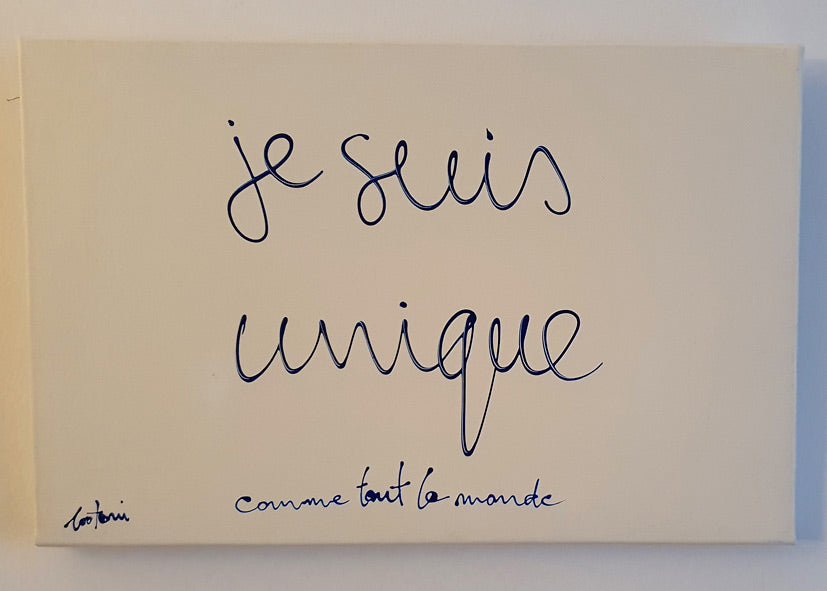 je suis
unique
comme tout le monde